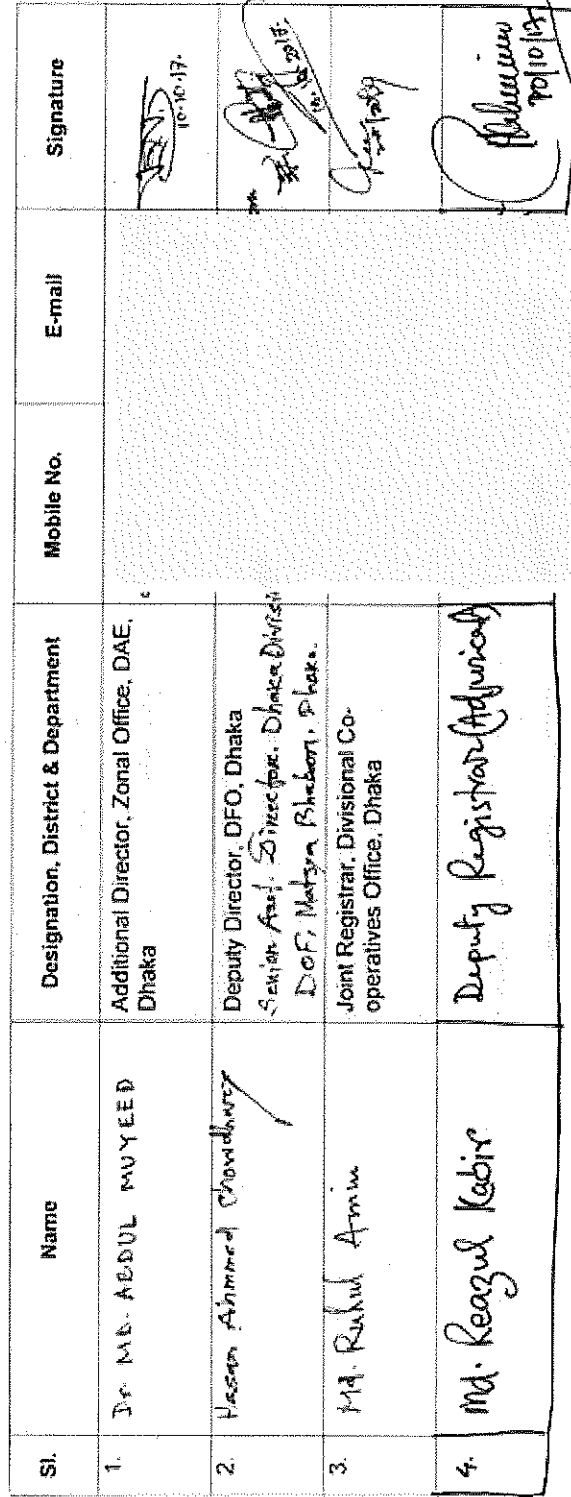 Sl. Name Designation, District & Department Mobile No. E-mail Signature
1. Dr. MD. ABDUL MUYEED Additional Director, Zonal Office, DAE,
Dhaka
10.10.17.
2. Hasan Ahmmed Chowdhury Deputy Director, DFO, Dhaka
Senior Asst. Director, Dhaka Divisi
DOF, Matsya Bhabon, Dhaka.
3. Md. Ruhul Amin Joint Registrar, Divisional Co-
operatives Office, Dhaka
4. Md. Reazul Kabir Deputy Registrar (Adjurical)
10/10/17